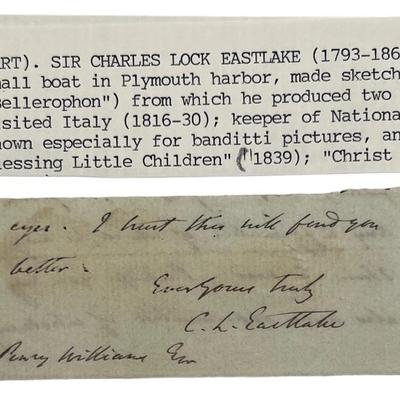 ART). SIR CHARLES LOCK EASTLAKE (1793-186
mall boat in Plymouth harbor, made sketch
sellerophon") from which he produced two
isited Italy (1816-30); keeper of Nationa
nown especially for banditti pictures, an
lessing Little Children" ("1839); "Christ
eyes. I trust this will find you
better.
Ever Yours truly
C. L. Eastlake
Penry Williams Esq